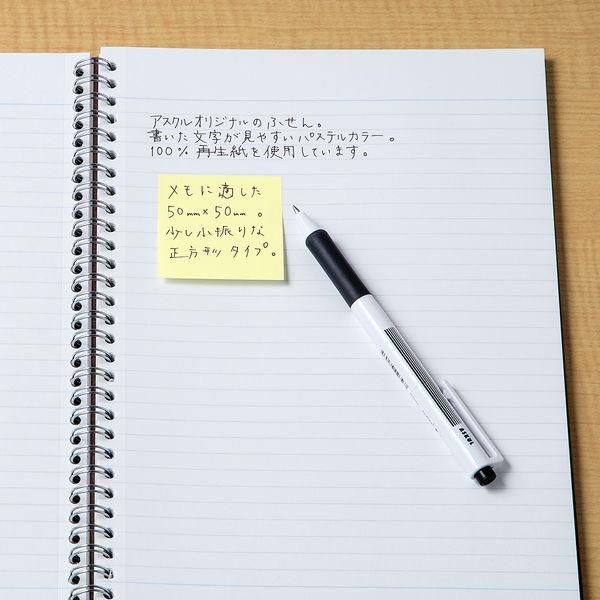 アスクルオリジナルのふせん。
書いた文字が見やすいパステルカラー。
100%再生紙を使用しています。
メモに適した
50mm×50mm。
少し小振りな
正方形タイプ。
ASKUL